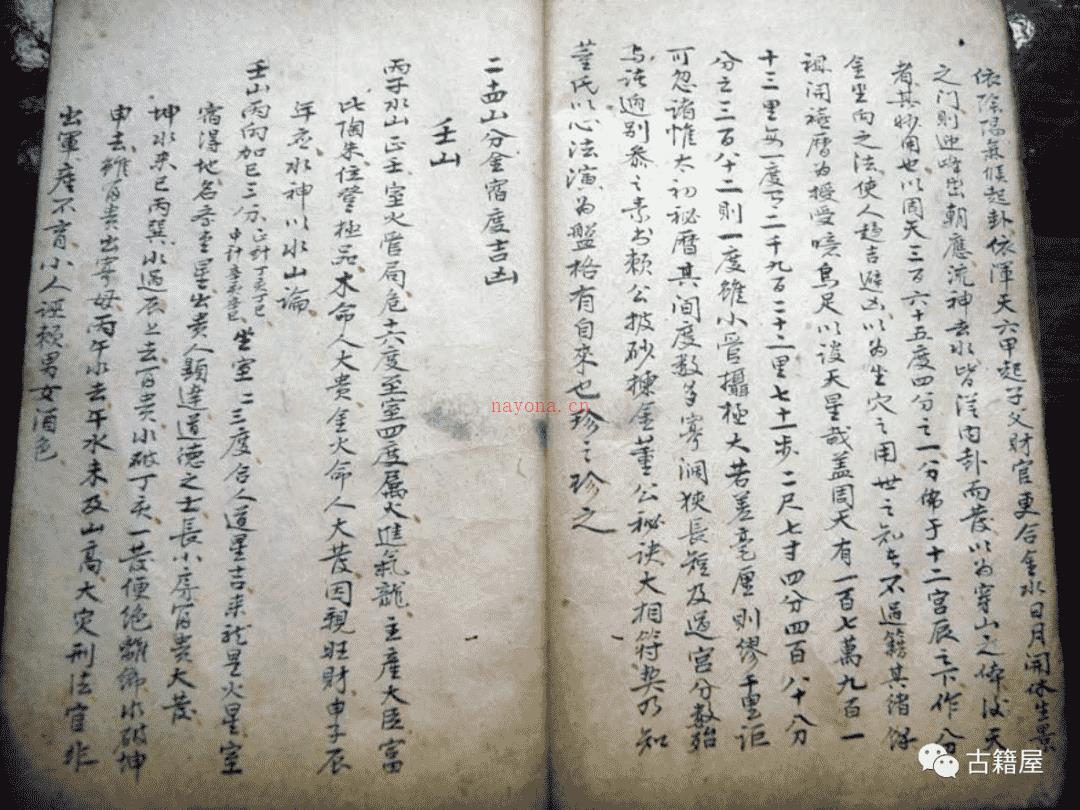 依除陽氣候起卦依渾天六甲起子父財官更合金水日月開休生景
之門則迎峰出朝應流神去水皆從內卦而發以為穿山之俾後天
者其妙用也以周天三百六十五度四分之一分佈于十二宮辰之下作分
金坐向之法使人趨吉避凶以為坐穴之用世之知者不過籍其緒餘
祖開禧曆為授受噫烏足以談天星哉蓋周天有一百七萬九百一
十三里每一度下二千九百二十二里七十一步二尺七寸四分四百八十分
分之三百八十二則一度雖小管攝極大若差毫厘則繆千里詎
可忽諸惟太初秘曆其間度數多寡濶狹長短及過宮分數殆
与諸廼別恭之素书賴公披砂揀金董公秘訣大相符契乃知
董氏以心法演為盤格有自來也珍之珍之
二十四山分金宿度吉凶
壬山
丙子水山正壬室火管局危十六度至室四度属火進氣龍主產大臣富
比陶朱位登極品木命人大貴金火命人大發因親旺財申子辰
年應水神以水山論
壬山丙向加巳三分正針丁亥丁巳 中針辛亥辛巳 坐室二三度合人道星吉来龍星火星室
宿得地名
星出貴人顯達道德之士長小房富貴大發
坤水来巳丙巽水過辰上去富貴水破丁亥一發便絕離鄉水破坤
申去雖富貴出寡母丙午水去午水未及山高大灾刑法官非
出軍產不育小人誣賴男女酒色
nayona.cn
古籍屋